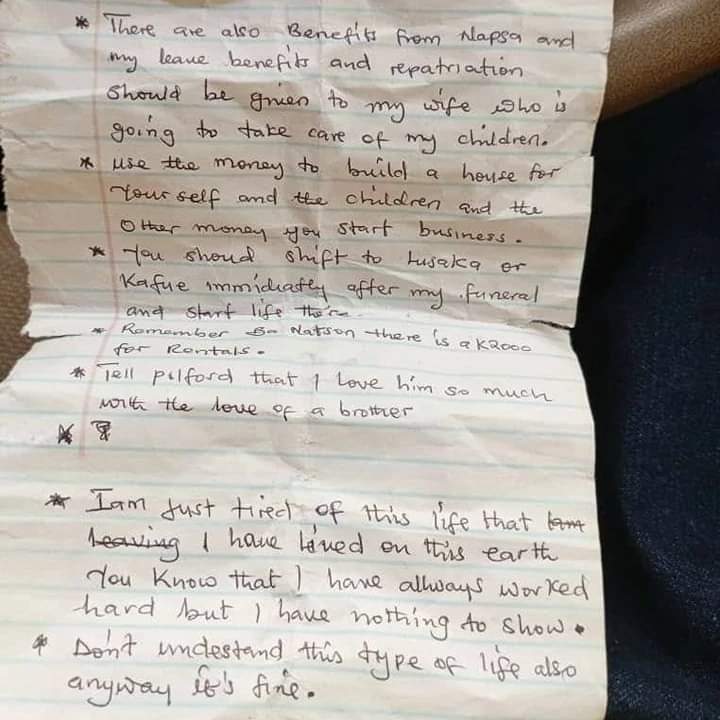 * There are also Benefits from Napsa and
my leave benefits and repatriation
should be given to my wife who is
going to take care of my children.
* use the money to build a house for
Your self and the children and the
Other money you start business.
* You shoud shift to Lusaka or
Kafue immidiatly after my funeral
and start life there
* Remember Ba Natson there is a K2000
for Rentals.
* Tell pilford that I Love him so much
with the love of a brother
* I am Just tired of this life that
leaving I have lived on this earth
You Know that I have allways worked
hard but I have nothing to show.
* Don't undestand this type of life also
anyway it's fine.